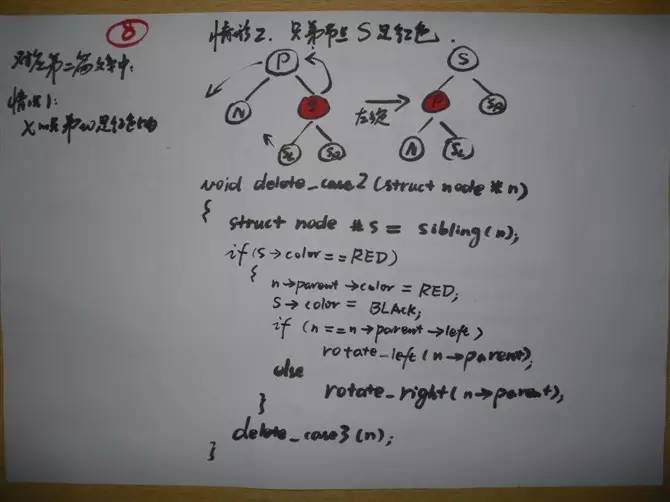 8
情形2. 兄弟节点S是红色.
对应第二篇文章中:
情况1:
x的兄弟w是红色的
P
S
N
S
左旋
P
SR
SL
SR
N
SL
void delete_case2(struct node *n)
{
struct node *s = sibling(n);
if(s->color==RED)
{
n->parent->color = RED;
s->color = BLAck;
if (n==n->parent->left)
rotate_left(n->parent);
else
rotate_right(n->parent);
}
delete_case3(n);
}